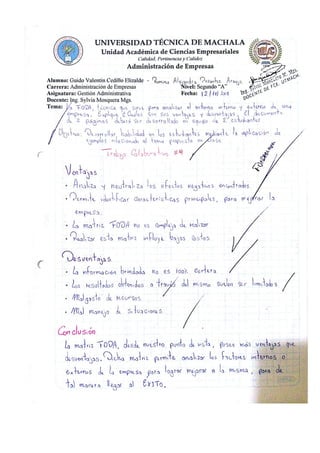 UNIVERSIDAD TÉCNICA DE MACHALA
Unidad Académica de Ciencias Empresariales
Calidad, Pertinencia y Calidez
Administración de Empresas
Alumno: Guido Valentin Cedillo Elizalde - Ramirez Alejandra
Carrera: Administración de Empresas Nivel: Segundo "A"
Asignatura: Gestión Administrativa Fecha:
Docente: Ing. Sylvia Mosquera Mgs.
Tema: FODA, técnica que sirve para analizar el entorno interno y externo de una
empresa. Explique cuáles son sus ventajas y desventajas. El documento
de 2 páginas deberá ser desarrollado en equipo de 2 estudiantes
Objetivo: Desarrollar habilidad en los estudiantes mediante la aplicación de
ejemplos relacionado al tema propuesto en clase
Trabajo Colaborativo #4
Ventajas
• Analiza y neutraliza los efectos negativos encontrados
• Permite identificar características principales, para mejorar la
empresa.
• La matriz FODA no es compleja de realizar
• Realizar esta matriz influye bajos costos.
Desventajas.
• La información brindada no es 100% certera
• Los resultados obtenidos a través del mismo suelen ser limitados
• Malgasto de recursos
• Mal manejo de situaciones
Conclusión
La matriz FODA, desde nuestro punto de vista, posee más ventajas que
desventajas. Dicha matriz permite analizar los factores internos o
externos de la empresa para lograr mejorar a la misma, para de
tal manera llegar al ÉXITO.